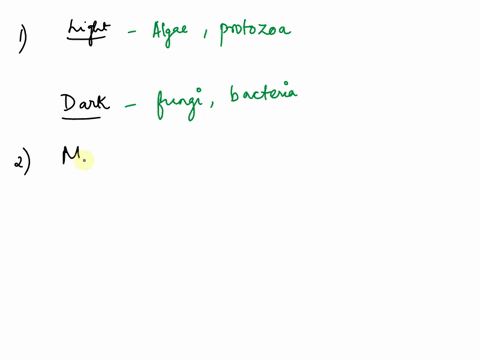 1) Light - Algae, protozoa
Dark - fungi, bacteria
2) M.